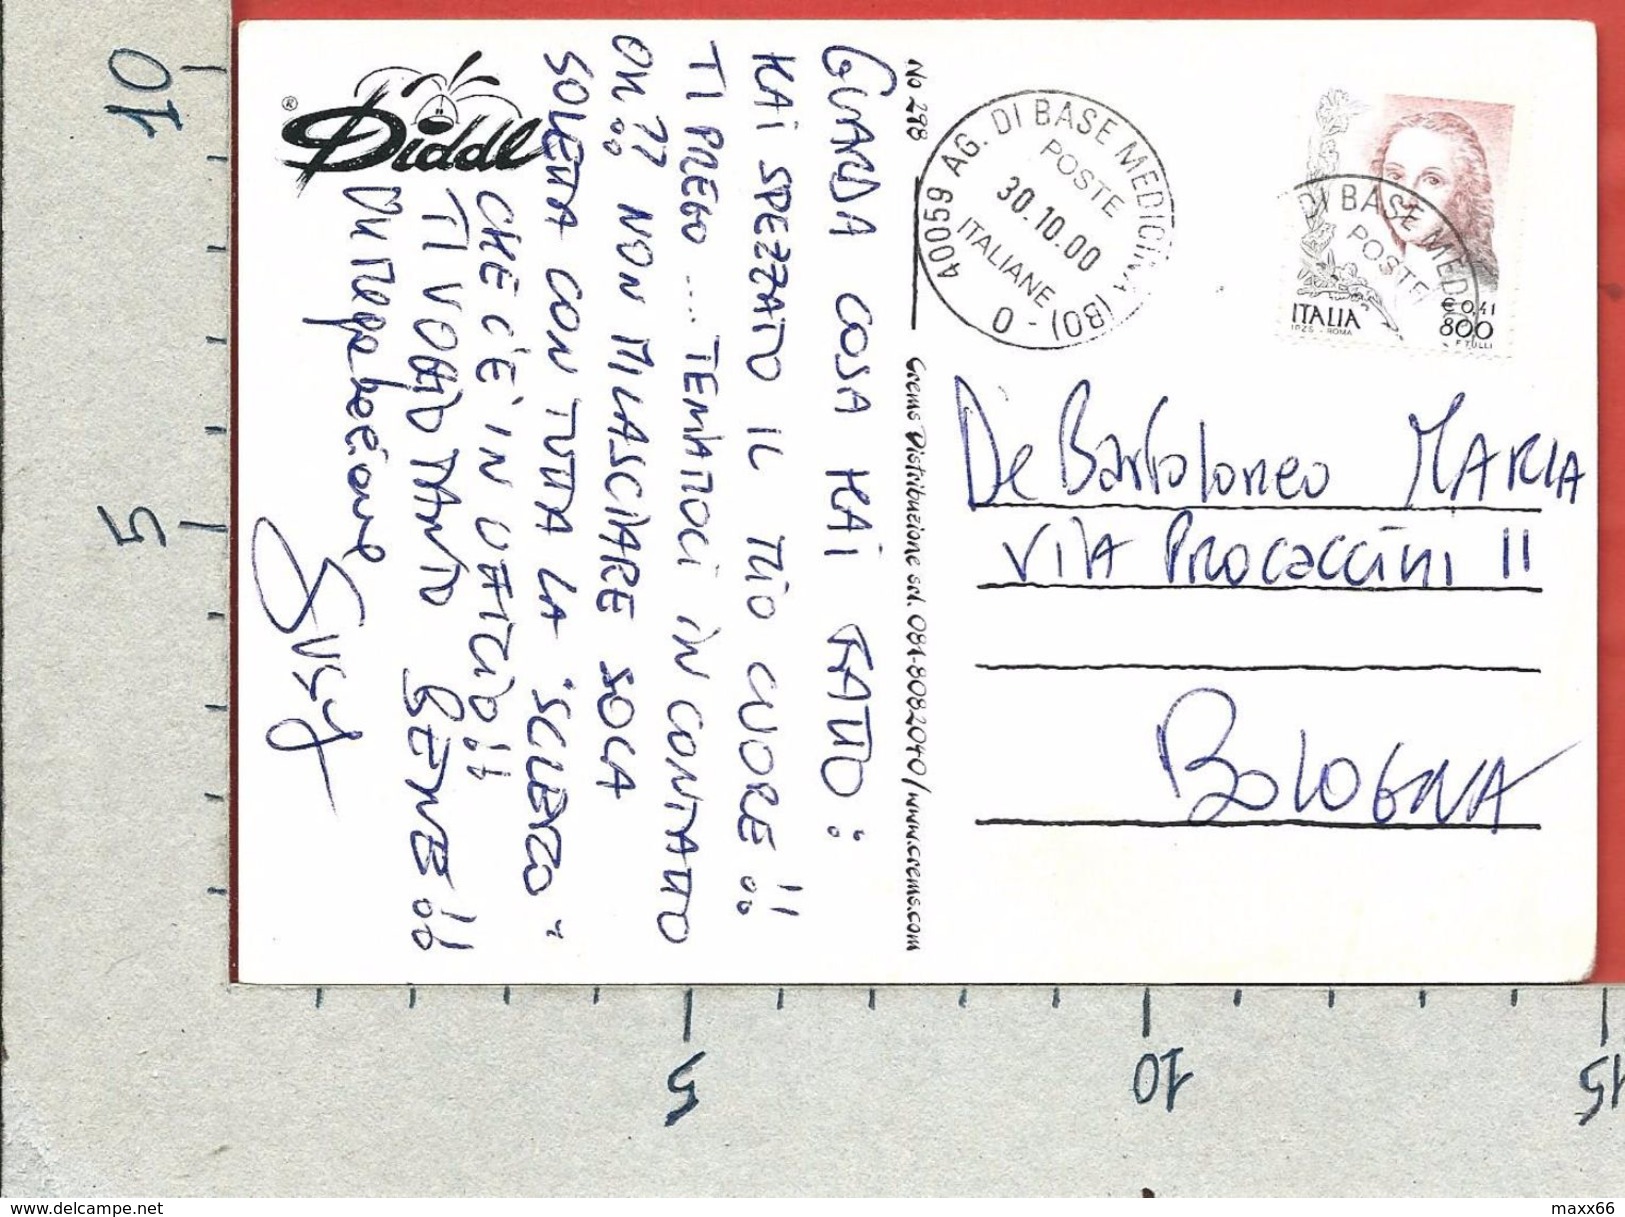 Diddl
®
GUARDA COSA HAI FATTO:
HAI SPEZZATO IL TUO CUORE!!
TI PREGO .... TENIAMOCI IN CONTATTO
OK?? NON MI LASCIARE SOLA
SOLETTA CON TUTTA LA "SCLERO"
CHE C'È IN UFFICIO!!
TI VOGLIO TANTO BENE!!
Susy
No 298
Crems Distribuzione srl. 081-8082040/www.crems.com
40059 AG. DI BASE MEDICINA (BO) - 0
POSTE
30.10.00
ITALIANE
DI BASE MEDIC
POSTE
ITALIA
I.P.Z.S. - ROMA
€ 0,41
800
F. TULLI
De Bartolomeo MARIA
VIA PROCACCINI 11
BOLOGNA
10
5
5
10
15
www.delcampe.net
maxx66